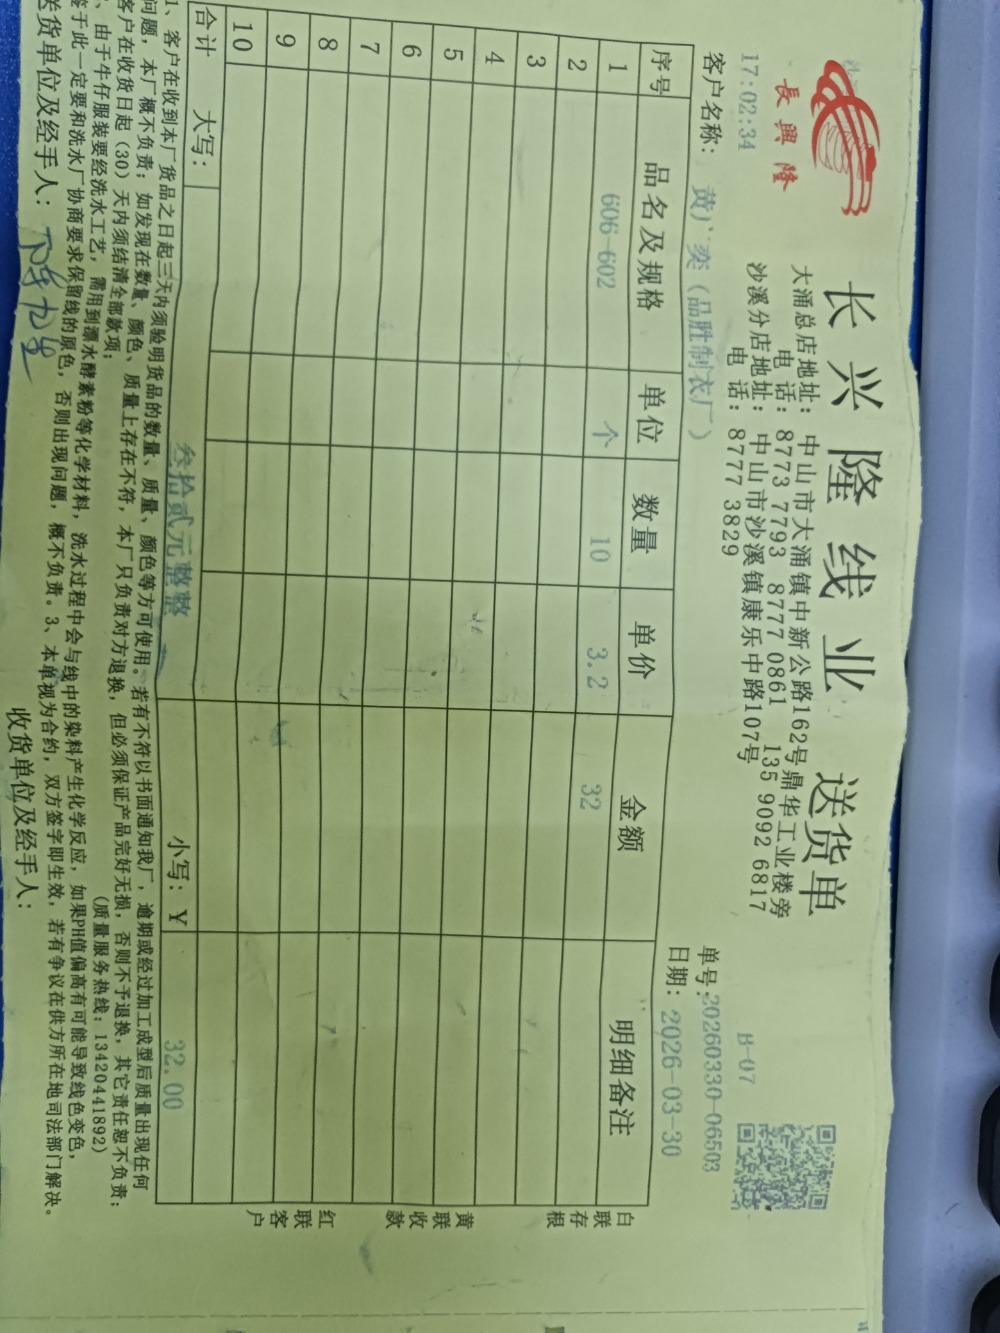 長興隆
长兴隆线业 送货单
大涌总店地址: 中山市大涌镇中新公路162号鼎华工业楼旁
电 话: 8773 7793 8777 0861 135 9092 6817
沙溪分店地址: 中山市沙溪镇康乐中路107号
电 话: 8777 3829
B-07
17:02:34
单号:20260330-06503
客户名称: 黄广奕(品胜制衣厂)
日期: 2026-03-30
序号 品名及规格 单位 数量 单价 金额 明细备注
1 606-602 个 10 3.2 32
2
3
4
5
6
7
8
9
10
合计 大写: 叁拾贰元整整 小写: ¥ 32.00
白联存根
黄联收款
红联客户
1、客户在收到本厂货品之日起三天内须验明货品的数量、质量、颜色等方可使用。若有不符以书面通知我厂,逾期或经过加工成型后质量出现任何
问题,本厂概不负责;如发现在数量、颜色、质量上存在不符,本厂只负责对方退换,但必须保证产品完好无损,否则不予退换,其它责任恕不负责;
客户在收货日起(30)天内须结清全部款项;(质量服务热线:13420441892)
、由于牛仔服装要经洗水工艺,需用到漂水酵素粉等化学材料,洗水过程中会与线中的染料产生化学反应,如果PH值偏高有可能导致线色变色,
签于此一定要和洗水厂协商要求保留线的原色,否则出现问题,概不负责。3、本单视为合约,双方签字即生效,若有争议在供方所在地司法部门解决。
送货单位及经手人: 收货单位及经手人: